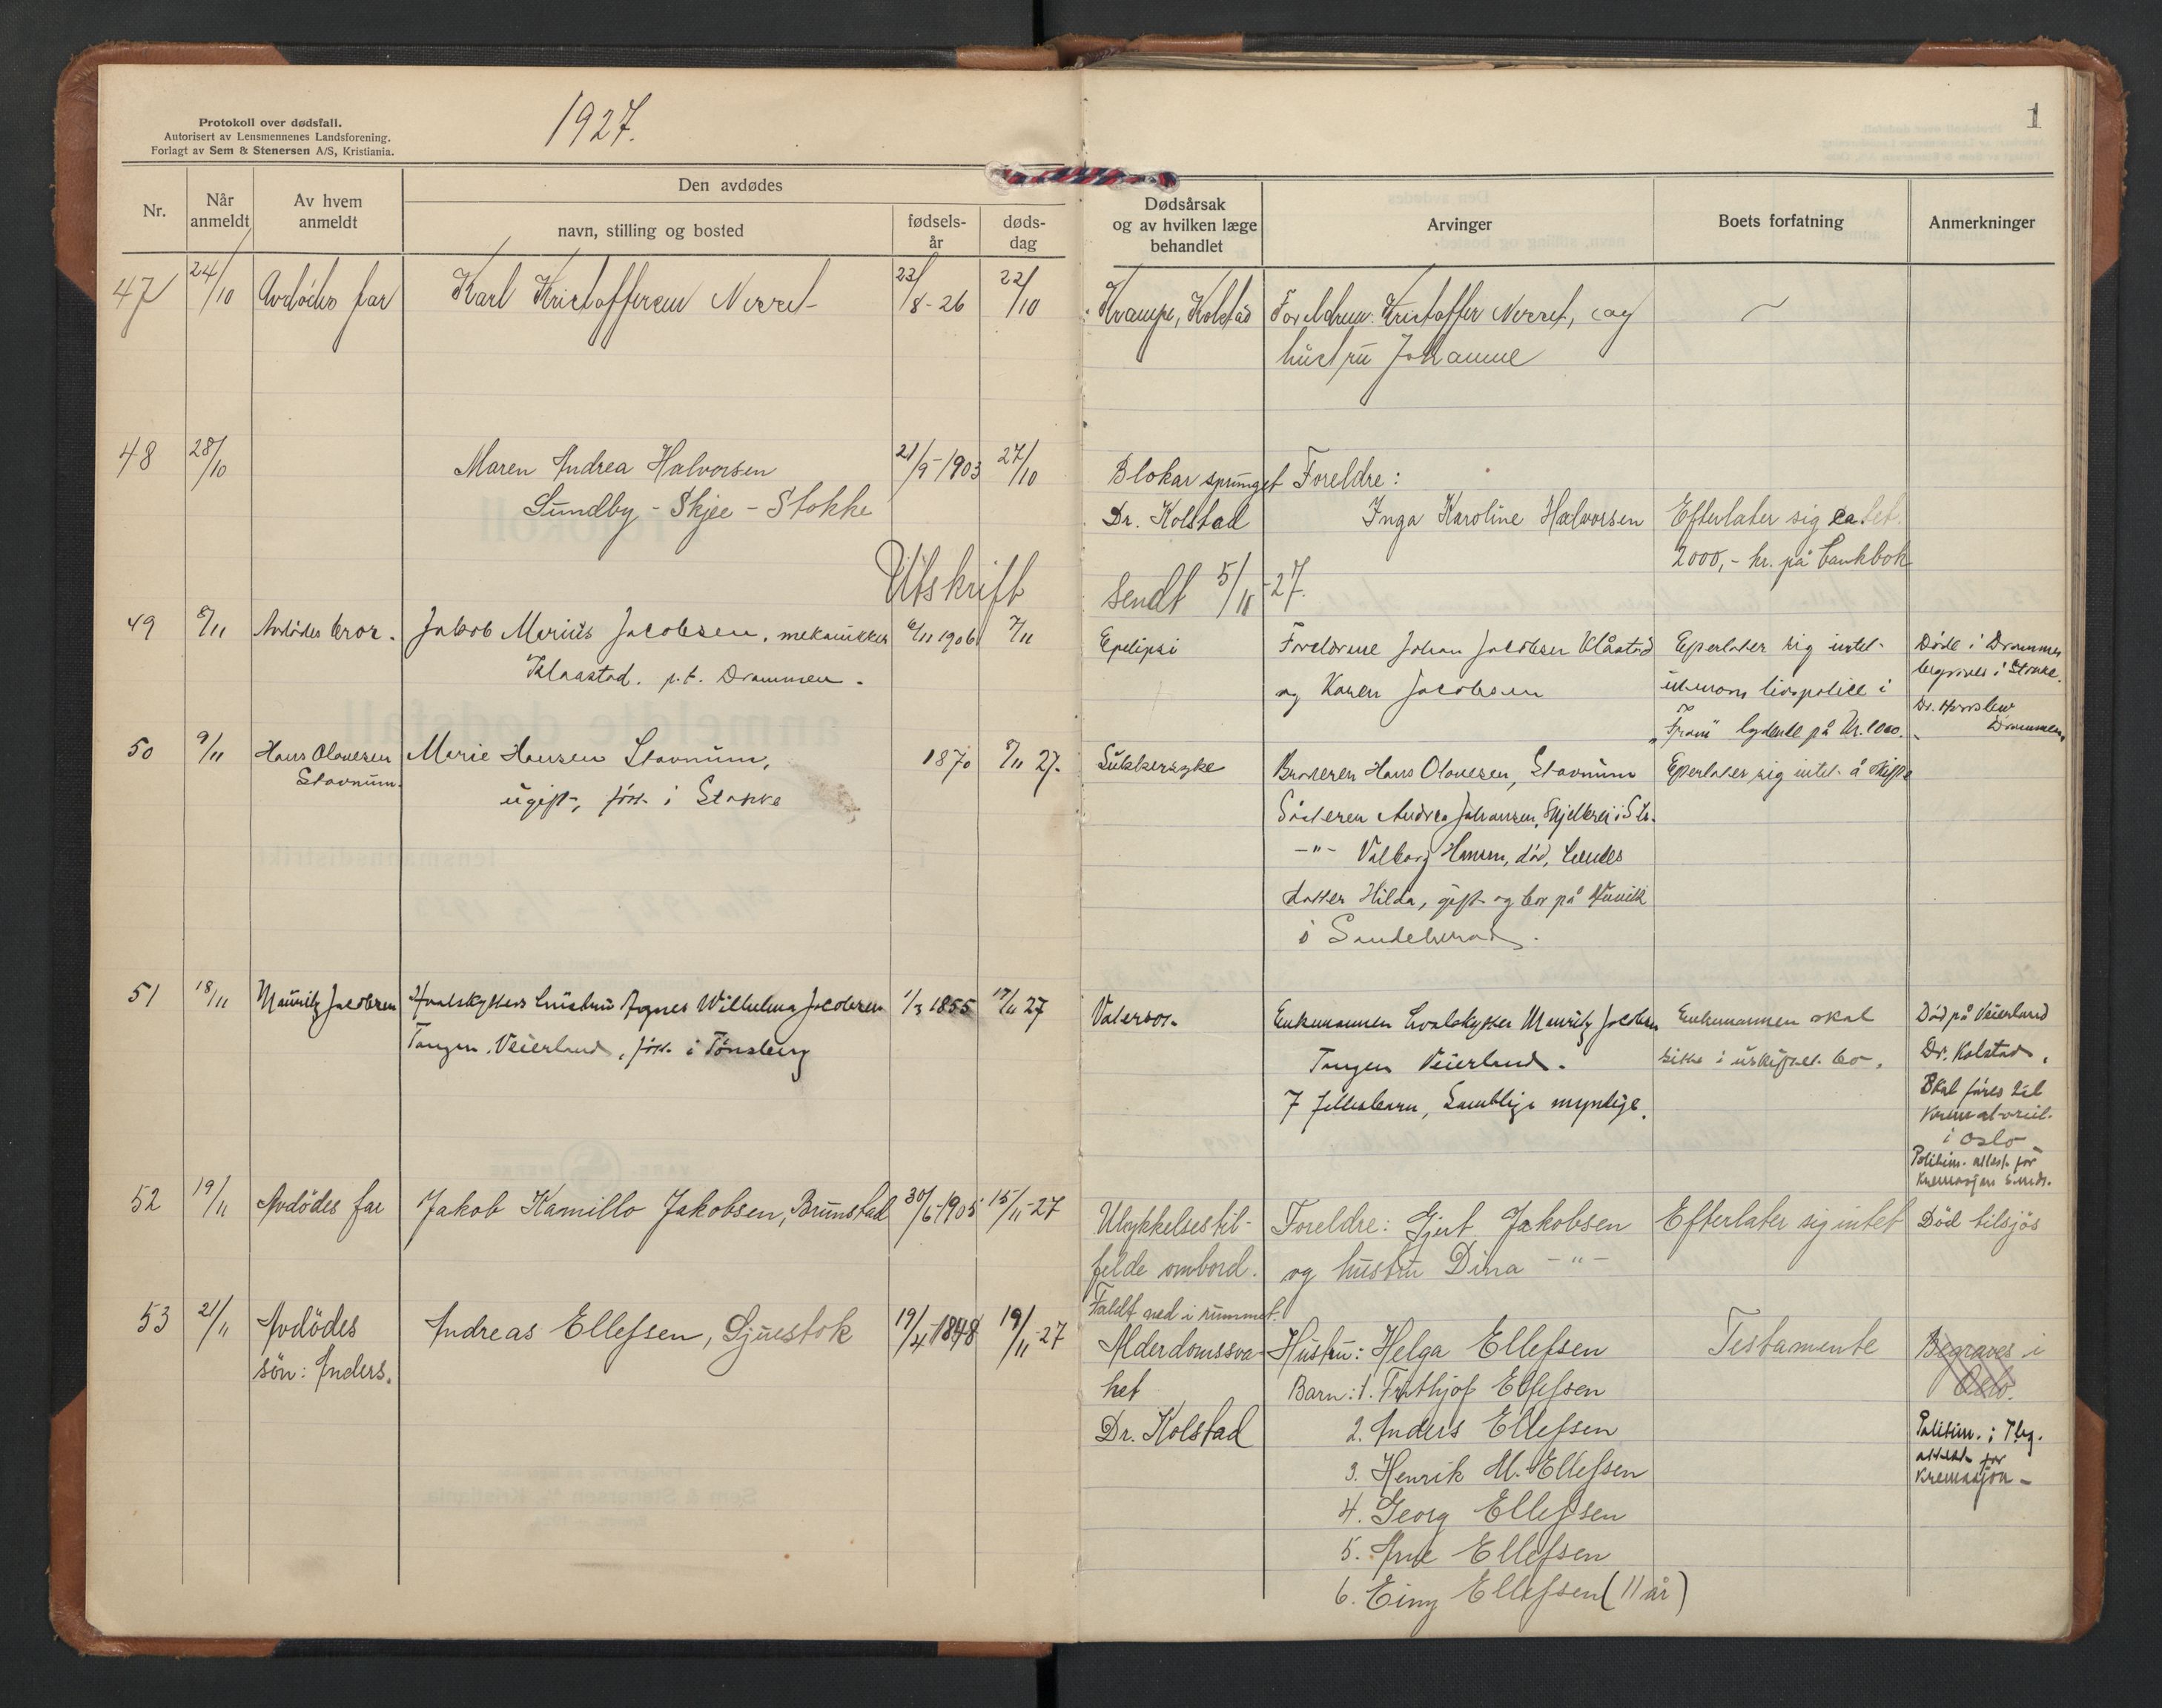 Protokoll over dødsfall.
Autorisert av Lensmennenes Landsforening.
Forlagt av Sem & Stenersen A/S, Kristiania.
1927.
1
Nr.
Når anmeldt
Av hvem anmeldt
Den avdødes
navn, stilling og bosted
fødselsår
dødsdag
Dødsårsak og av hvilken læge behandlet
Arvinger
Boets forfatning
Anmerkninger
47 24/10 Avdødes far Karl Kristoffersen Nerret 22/8-26 22/10 Krampe, Kolstad Foreldrene: Kristoffer Nerret, og
hustru Johanne
48 28/10 Maren Andrea Halvorsen 21/9-1903 27/10 Blokar sprunget Foreldre:
Sundby - Skjee - Stokke Dr. Kolstad Inga Karoline Halvorsen Efterlater sig ca.
2000,- kr. på bankbok
Utskrift sendt 5/11-27.
49 8/11 Avdødes bror. Jakob Marius Jacobsen, mekanikker 6/11 1906 7/11 Epelipsi Foreldrene Johan Jacobsen Klåstad Eperlater sig intet Döde i Drammen
Klaastad. p.t. Drammen. og Karen Jacobsen utenom livspolice i begraves i Stokke.
"Fram" lydende på kr. 1000. Dr.
Drammen
50 9/11 Hans Olavesen Marie Hansen Stavnum, 1870 8/11 27. Sukkersyke Broderen Hans Olavesen, Stavnum Eperlater sig intet å skifte
Stavnum. ugift, föd. i Stokke
Söstereren Andrea Johansen, i St.
-"- Valborg Hansen, död, hendes
datter Hilda, gift og bor på
i Sandeherad.
51 18/11 Mauritz Jacobsen Hvalskytters hustru Agnes Wilhelma Jacobsen 1/3 1855 17/11 27 Vatersot. Enkemannen hvalskytter Mauritz Jacobsen Enkemannen skal Död på Veierland
Tangen, Veierland, föd. i Tönsberg Tangen Veierland. sitte i uskiftet bo. Dr. Kolstad.
7 fellesbarn, samtlige myndige. Skal föres til
Krematoriet
i Oslo
Politim. attest for
Kremasjon sendt.
52 19/11 Avdödes far Jakob Kamillo Jakobsen, Brunstad 30/6-1905 15/11-27 Ulykkelsestil- Foreldre: Gjert Jakobsen Efterlater sig intet Död tilsjös
felde ombord. og hustru Dina -"-
Faldt ned i rummet.
53 21/11 Avdödes Andreas Ellefsen, Ljuestok 19/4-1848 19/11-27 Alderdomssva- Hustru: Helga Ellefsen Testamente Begraves i
sön: Anders. het Barn: 1. Frithjof Ellefsen Oslo.
Dr. Kolstad 2. Anders Ellefsen Politim. i Tbg.
3. Henrik M. Ellefsen attest for
4. Georg Ellefsen Kremasjon -
5. Arne Ellefsen
6. Einy Ellefsen (11 år)